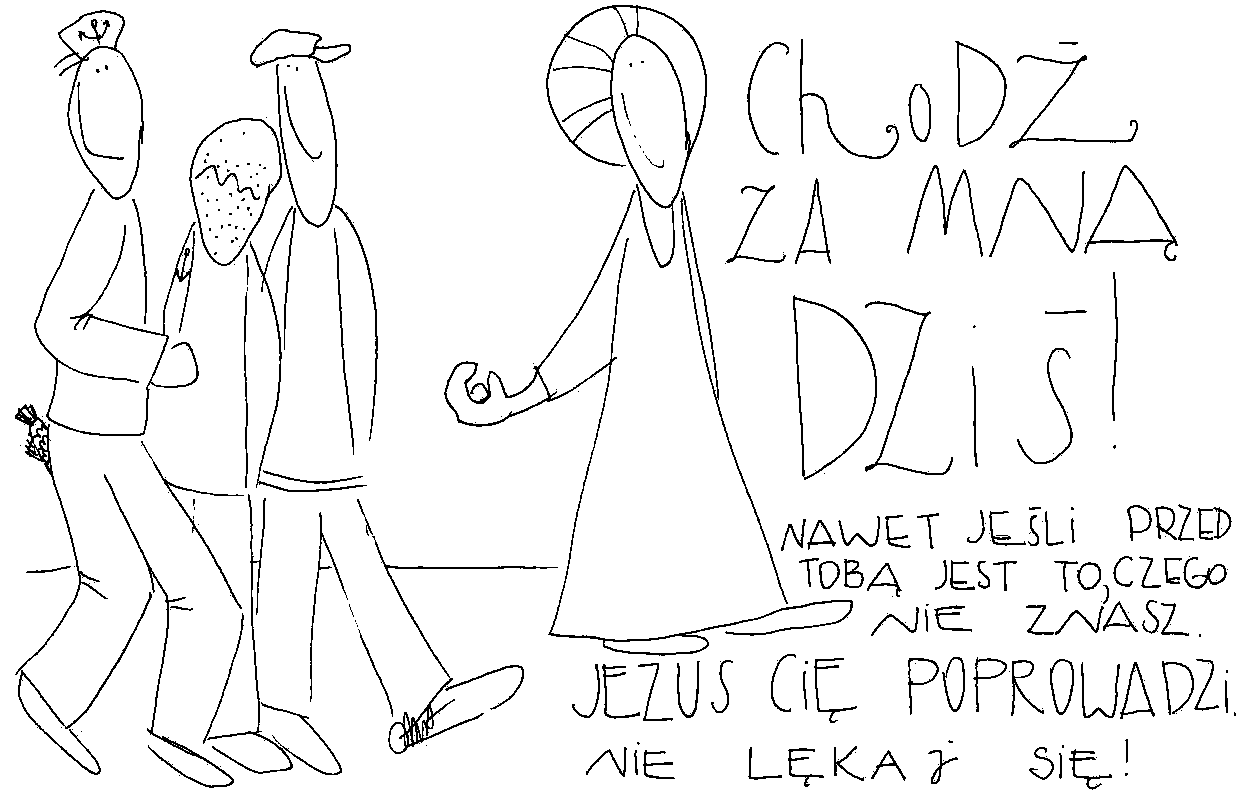 ChODŹ
ZA MNĄ
DZiŚ!
NAWET JEŚLi PRZED
TOBĄ JEST TO,CZEGO
NiE ZNASZ.
JEZUS CiĘ POPROWADZi.
NiE LĘKAj SiĘ!